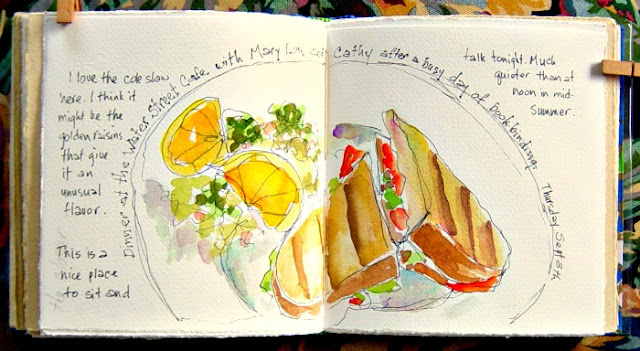 I love the cole slaw
here. I think it
might be the
golden raisins
that give
it an
unusual
flavor.
This is a
nice place
to sit and
talk tonight. Much
quieter than at
noon in mid-
summer.
Dinner at the Water Street Cafe with Mary Lou and Cathy after a busy day of Bookbinding. Thursday Sept 8th